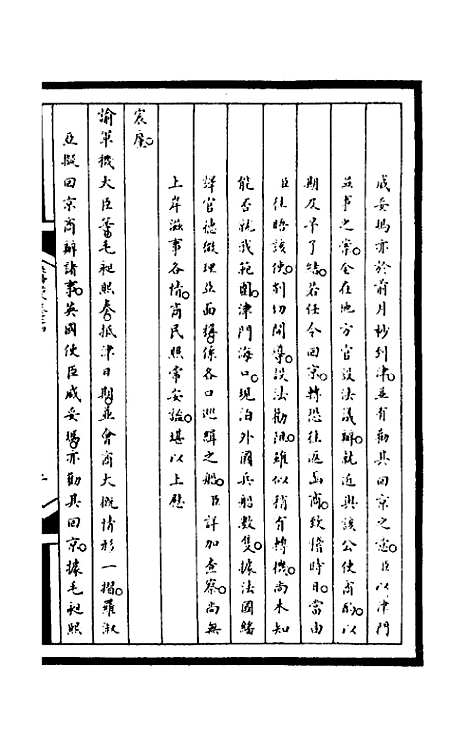 威妥瑪亦於前月杪到津。並有勸其回京之意。臣以津門
並事之案。全在地方官設法議辦。就近與該公使商酌。以
期及早了結。若任令回京。轉恐往返函商。致稽時日。當面
臣往晤該使。剴切開導。設法勸阻。雖似稍有轉機。尚未知
能否就我範圍。津門海口。現泊外國兵船數隻。據法國繙
譯官德微理亞面稱。係各口巡緝之船。臣詳加查察。尚無
上岸滋事各情。商民照常安謐。堪以上慰
宸廑。
諭軍機大臣等毛昶熙奏。抵津日期。並會商大概情形一摺。羅淑
亞擬回京商辦諸事。英國使臣威妥瑪。亦勸其回京。據毛昶熙